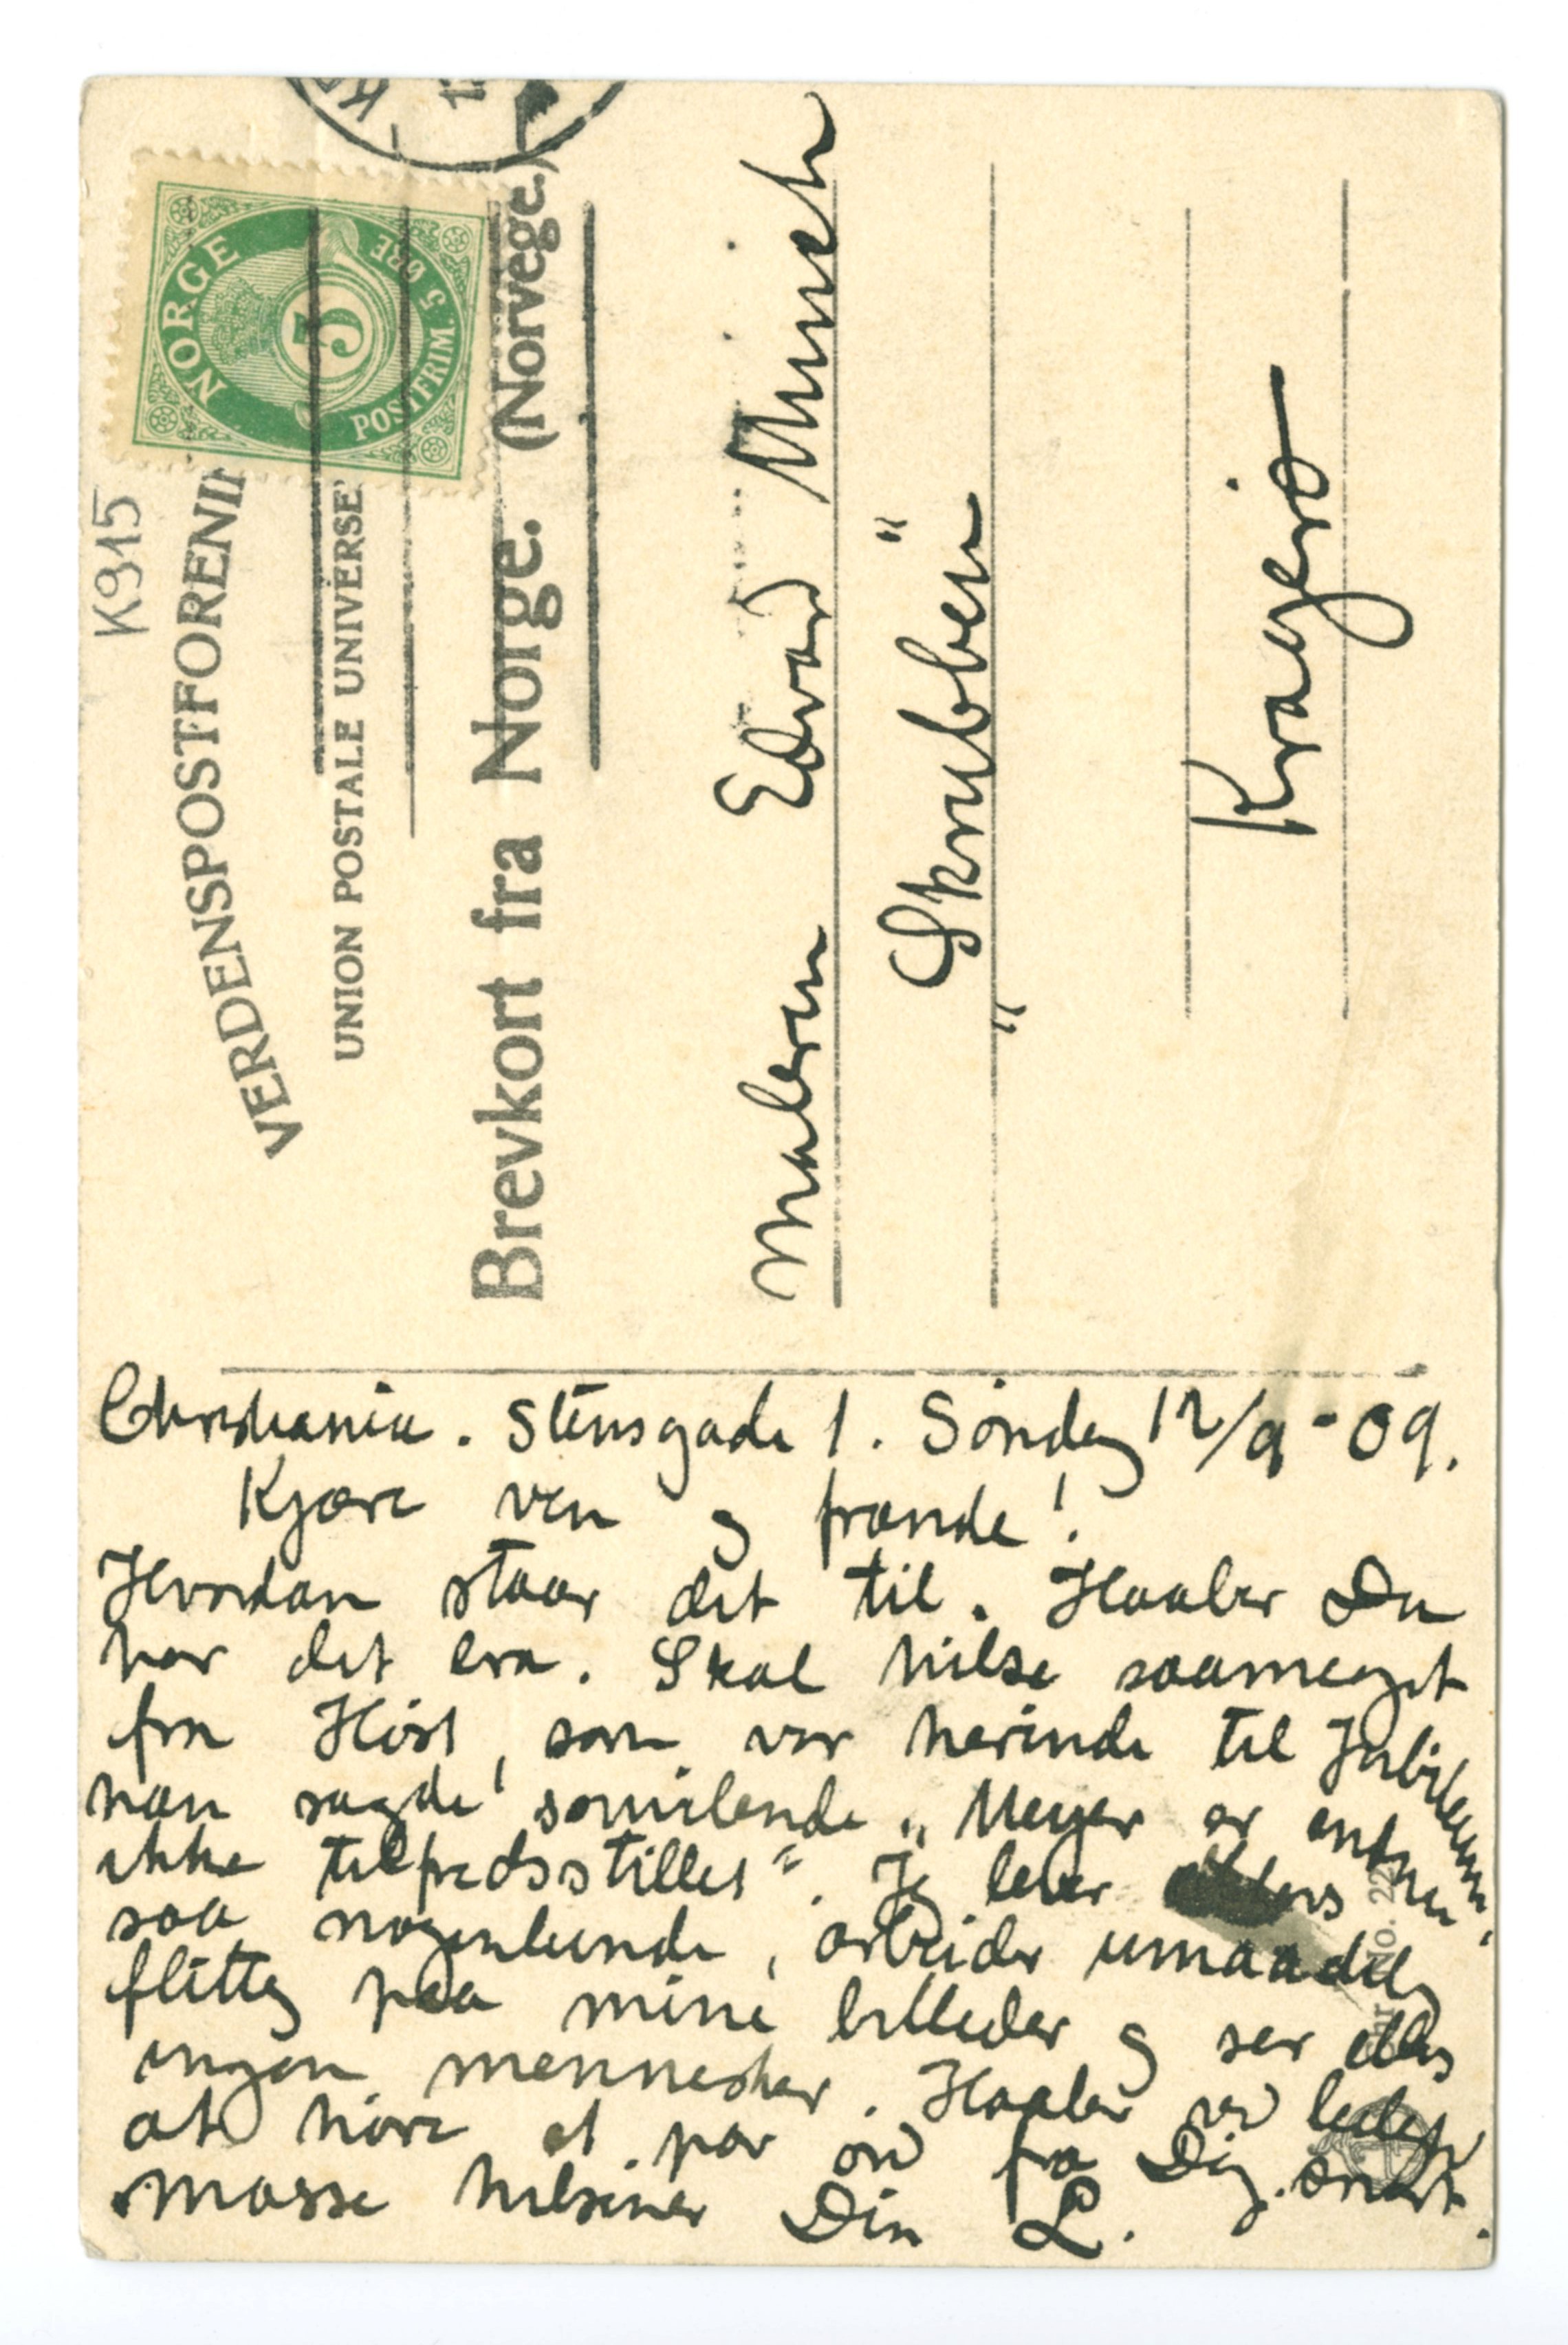 K915
VERDENSPOSTFORENIN
UNION POSTALE UNIVERSE
Brevkort fra Norge. (Norvège.)
NORGE
POSTFRIM. 5 ØRE
5
Maleren Edvard Munch
"Skrubben"
Kragerø
Christiania. Stensgade 1. Søndag 12/9-09.
Kjære ven og frænde!
Hvordan staar det til. Haaber Du
har det bra. Skal hilse saameget
fra Høst, som var herinde til Jubilæum,
han sagde smilende „Meyer er endnu
ikke tilfredsstillet". Jeg lever ellers
saa nogenlunde, arbeider umaadelig
flittig paa mine billeder og ser ellers
ingen mennesker. Haaber ved leilighed
at høre et par ord fra Dig snart.
Masse hilsener Din L.